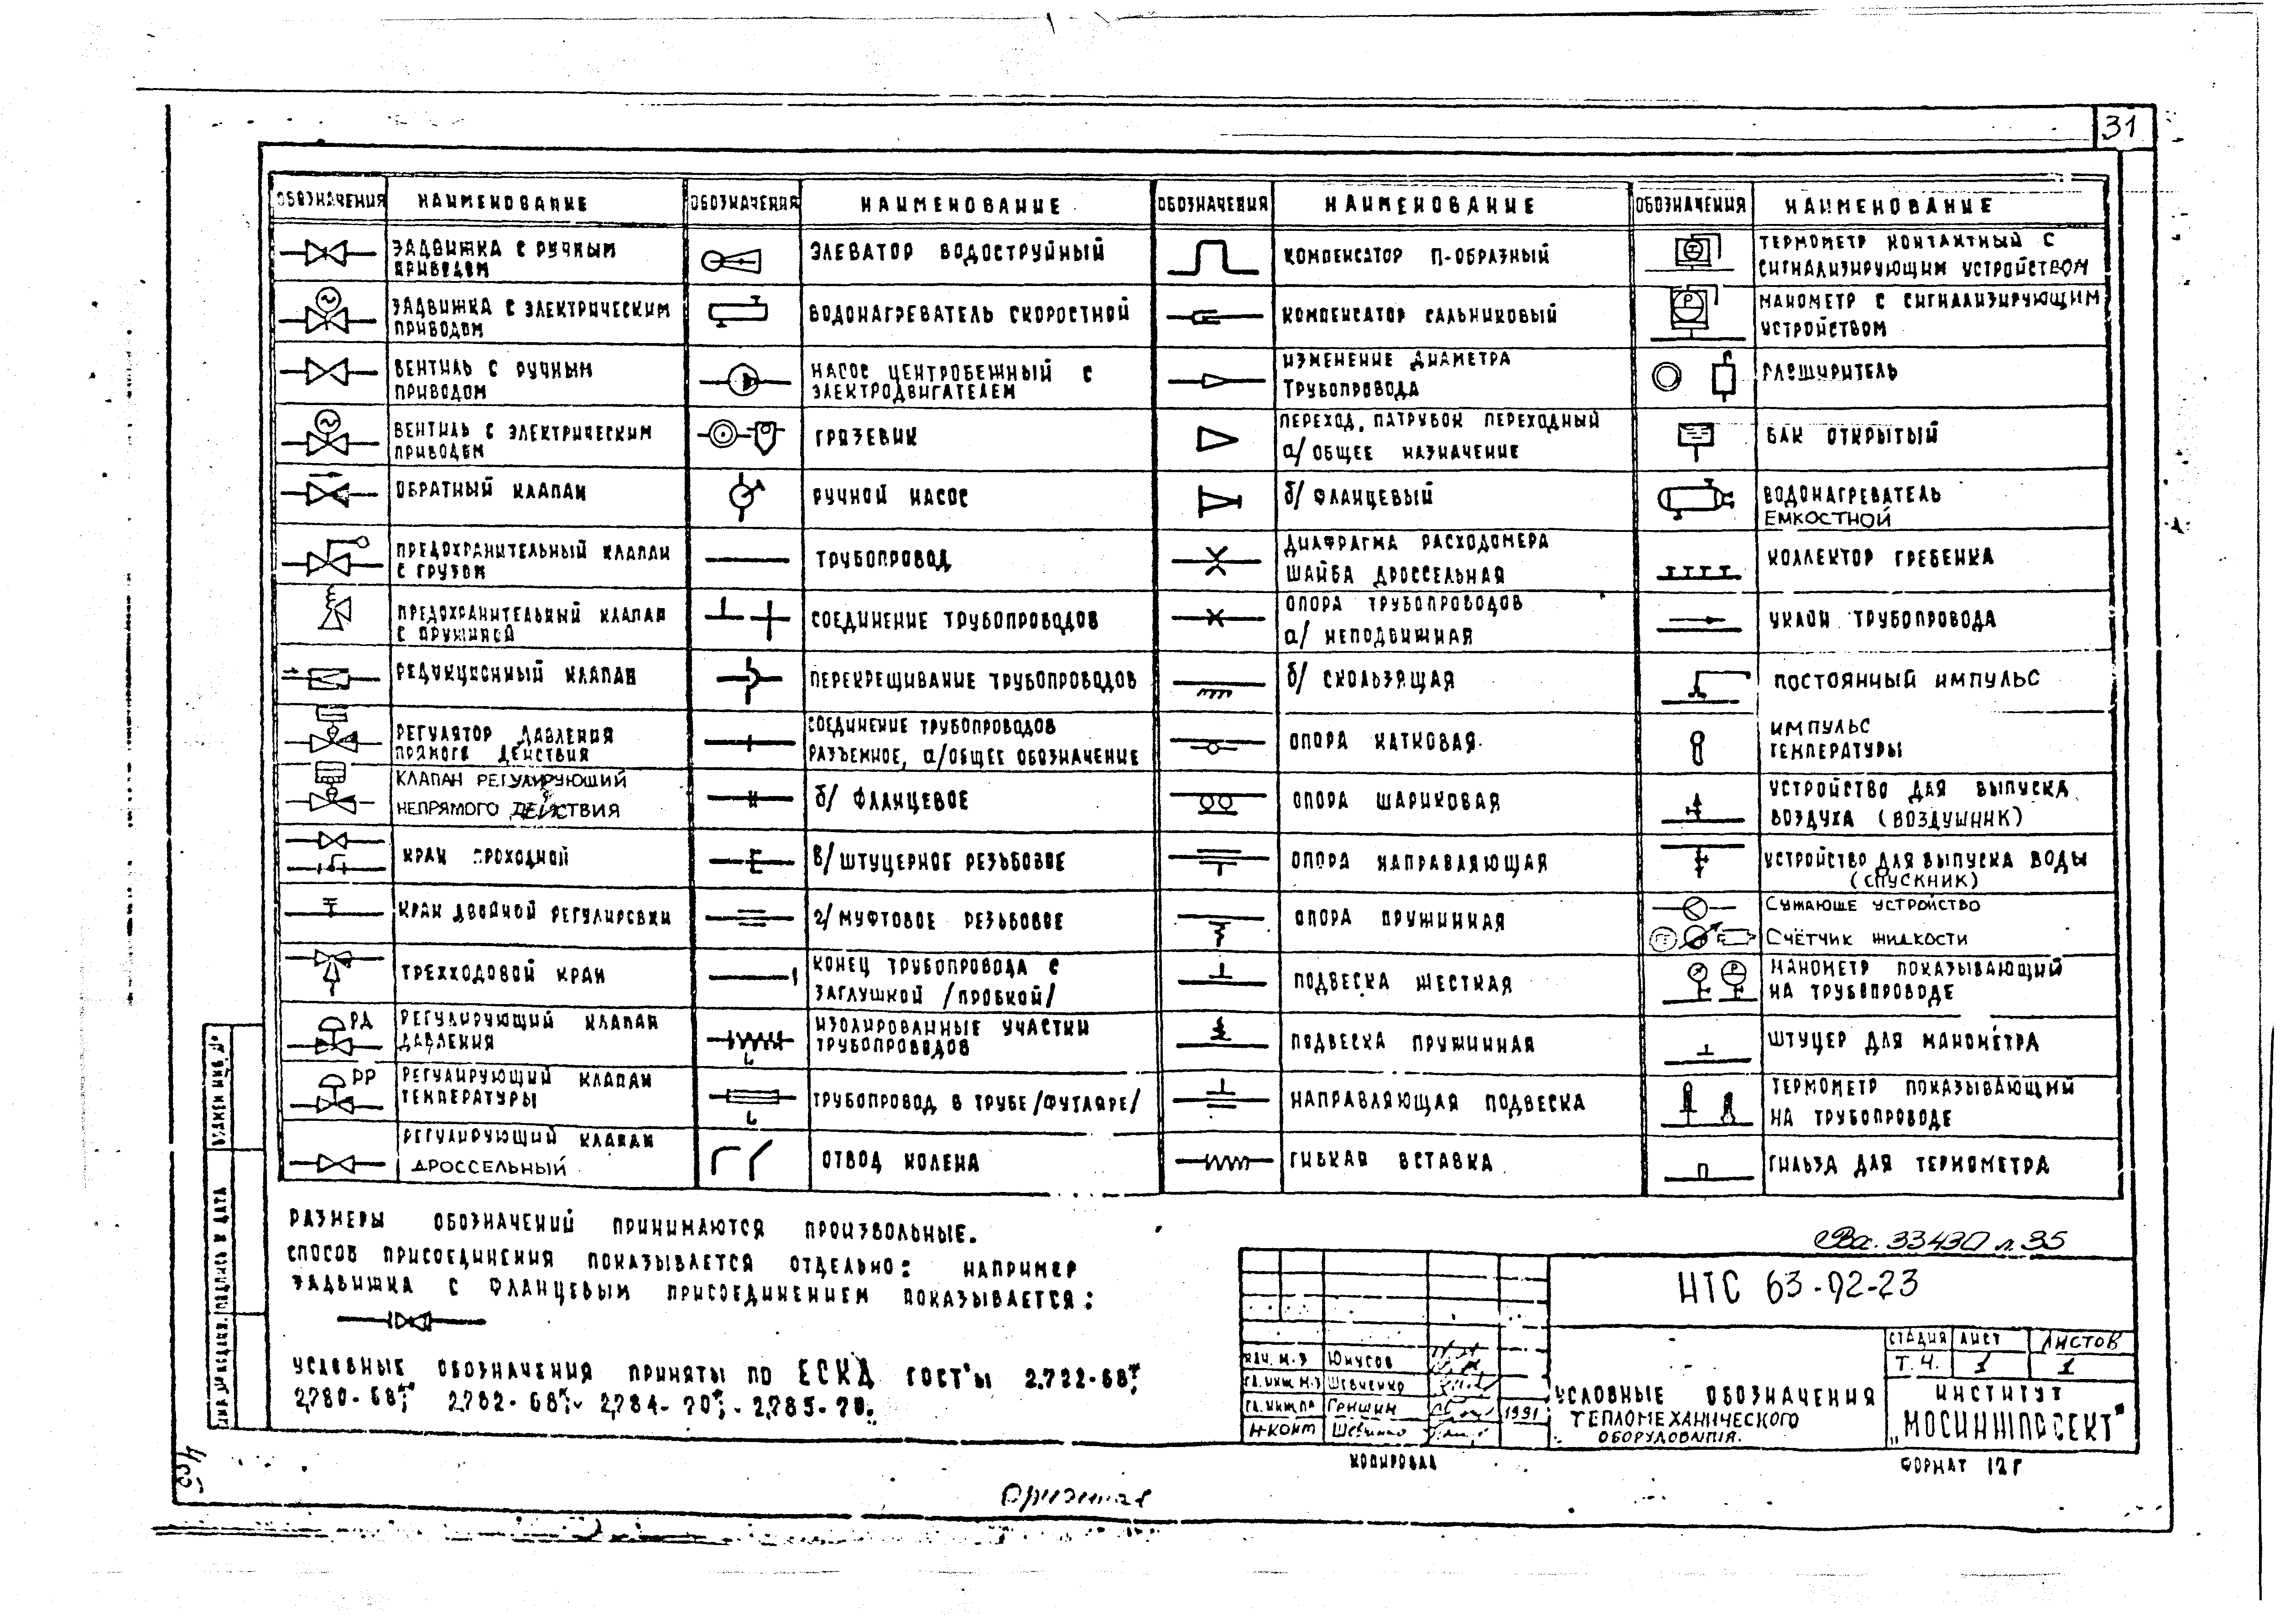 31
ОБОЗНАЧЕНИЯ
НАИМЕНОВАНИЕ
ЗАДВИЖКА С РУЧНЫМ
ПРИВОДОМ
ЗАДВИЖКА С ЭЛЕКТРИЧЕСКИМ
ПРИВОДОМ
ВЕНТИЛЬ С РУЧНЫМ
ПРИВОДОМ
ВЕНТИЛЬ С ЭЛЕКТРИЧЕСКИМ
ПРИВОДОМ
ОБРАТНЫЙ КЛАПАН
ПРЕДОХРАНИТЕЛЬНЫЙ КЛАПАН
С ГРУЗОМ
ПРЕДОХРАНИТЕЛЬНЫЙ КЛАПАН
С ПРУЖИНОЙ
РЕДУКЦИОННЫЙ КЛАПАН
РЕГУЛЯТОР ДАВЛЕНИЯ
ПРЯМОГО ДЕЙСТВИЯ
КЛАПАН РЕГУЛИРУЮЩИЙ
НЕПРЯМОГО ДЕЙСТВИЯ
КРАН ПРОХОДНОЙ
КРАН ДВОЙНОЙ РЕГУЛИРОВКИ
ТРЕХХОДОВОЙ КРАН
РД
РЕГУЛИРУЮЩИЙ КЛАПАН
ДАВЛЕНИЯ
РР
РЕГУЛИРУЮЩИЙ КЛАПАН
ТЕМПЕРАТУРЫ
РЕГУЛИРУЮЩИЙ КЛАПАН
ДРОССЕЛЬНЫЙ
ОБОЗНАЧЕНИЯ
НАИМЕНОВАНИЕ
ЭЛЕВАТОР ВОДОСТРУЙНЫЙ
ВОДОНАГРЕВАТЕЛЬ СКОРОСТНОЙ
НАСОС ЦЕНТРОБЕЖНЫЙ С
ЭЛЕКТРОДВИГАТЕЛЕМ
ГРЯЗЕВИК
РУЧНОЙ НАСОС
ТРУБОПРОВОД
СОЕДИНЕНИЕ ТРУБОПРОВОДОВ
ПЕРЕКРЕЩИВАНИЕ ТРУБОПРОВОДОВ
СОЕДИНЕНИЕ ТРУБОПРОВОДОВ
РАЗЪЕМНОЕ, а/ОБЩЕЕ ОБОЗНАЧЕНИЕ
б/ ФЛАНЦЕВОЕ
в/ ШТУЦЕРНОЕ РЕЗЬБОВОЕ
г/ МУФТОВОЕ РЕЗЬБОВОЕ
КОНЕЦ ТРУБОПРОВОДА С
ЗАГЛУШКОЙ /ПРОБКОЙ/
L
ИЗОЛИРОВАННЫЕ УЧАСТКИ
ТРУБОПРОВОДОВ
L
ТРУБОПРОВОД В ТРУБЕ /ФУТЛЯРЕ/
ОТВОД КОЛЕНА
ОБОЗНАЧЕНИЯ
НАИМЕНОВАНИЕ
КОМПЕНСАТОР П-ОБРАЗНЫЙ
КОМПЕНСАТОР САЛЬНИКОВЫЙ
ИЗМЕНЕНИЕ ДИАМЕТРА
ТРУБОПРОВОДА
ПЕРЕХОД, ПАТРУБОК ПЕРЕХОДНЫЙ
а/ ОБЩЕЕ НАЗНАЧЕНИЕ
б/ ФЛАНЦЕВЫЙ
ДИАФРАГМА РАСХОДОМЕРА
ШАЙБА ДРОССЕЛЬНАЯ
ОПОРА ТРУБОПРОВОДОВ
а/ НЕПОДВИЖНАЯ
б/ СКОЛЬЗЯЩАЯ
ОПОРА КАТКОВАЯ
ОПОРА ШАРИКОВАЯ
ОПОРА НАПРАВЛЯЮЩАЯ
ОПОРА ПРУЖИННАЯ
ПОДВЕСКА ЖЕСТКАЯ
ПОДВЕСКА ПРУЖИННАЯ
НАПРАВЛЯЮЩАЯ ПОДВЕСКА
ГИБКАЯ ВСТАВКА
ОБОЗНАЧЕНИЯ
НАИМЕНОВАНИЕ
Т
ТЕРМОМЕТР КОНТАКТНЫЙ С
СИГНАЛИЗИРУЮЩИМ УСТРОЙСТВОМ
Р
МАНОМЕТР С СИГНАЛИЗИРУЮЩИМ
УСТРОЙСТВОМ
РАСШИРИТЕЛЬ
БАК ОТКРЫТЫЙ
ВОДОНАГРЕВАТЕЛЬ
ЕМКОСТНОЙ
КОЛЛЕКТОР ГРЕБЕНКА
УКЛОН ТРУБОПРОВОДА
ПОСТОЯННЫЙ ИМПУЛЬС
ИМПУЛЬС
ТЕМПЕРАТУРЫ
УСТРОЙСТВО ДЛЯ ВЫПУСКА
ВОЗДУХА (ВОЗДУШНИК)
УСТРОЙСТВО ДЛЯ ВЫПУСКА ВОДЫ
(СПУСКНИК)
СУЖАЮЩЕ УСТРОЙСТВО
СЧЁТЧИК ЖИДКОСТИ
Р
МАНОМЕТР ПОКАЗЫВАЮЩИЙ
НА ТРУБОПРОВОДЕ
ШТУЦЕР ДЛЯ МАНОМЕТРА
ТЕРМОМЕТР ПОКАЗЫВАЮЩИЙ
НА ТРУБОПРОВОДЕ
ГИЛЬЗА ДЛЯ ТЕРМОМЕТРА
РАЗМЕРЫ ОБОЗНАЧЕНИЙ ПРИНИМАЮТСЯ ПРОИЗВОЛЬНЫЕ.
СПОСОБ ПРИСОЕДИНЕНИЯ ПОКАЗЫВАЕТСЯ ОТДЕЛЬНО: НАПРИМЕР
ЗАДВИЖКА С ФЛАНЦЕВЫМ ПРИСОЕДИНЕНИЕМ ПОКАЗЫВАЕТСЯ:
УСЛОВНЫЕ ОБОЗНАЧЕНИЯ ПРИНЯТЫ ПО ЕСКД ГОСТ'ы 2.722-68*,
2,780-68*, 2,782-68*, 2,784-70*, 2,785-70.
Вх. 33430 л. 35
НТС 63-92-23
СТАДИЯ ЛИСТ ЛИСТОВ
Т.Ч. 1 1
НАЧ. М-3 Юнусов
ГЛ. ИНЖ М-3 ШЕВЧЕНКО
ГЛ. ИНЖ ПР ГРИШИН 1991
Н-КОНТ
УСЛОВНЫЕ ОБОЗНАЧЕНИЯ
ТЕПЛОМЕХАНИЧЕСКОГО
ОБОРУДОВАНИЯ.
ИНСТИТУТ
„МОСИНЖПРОЕКТ"
КОПИРОВАЛ
ФОРМАТ 12Г
ВЗАМЕН ИНВ. №
ПОДПИСЬ И ДАТА